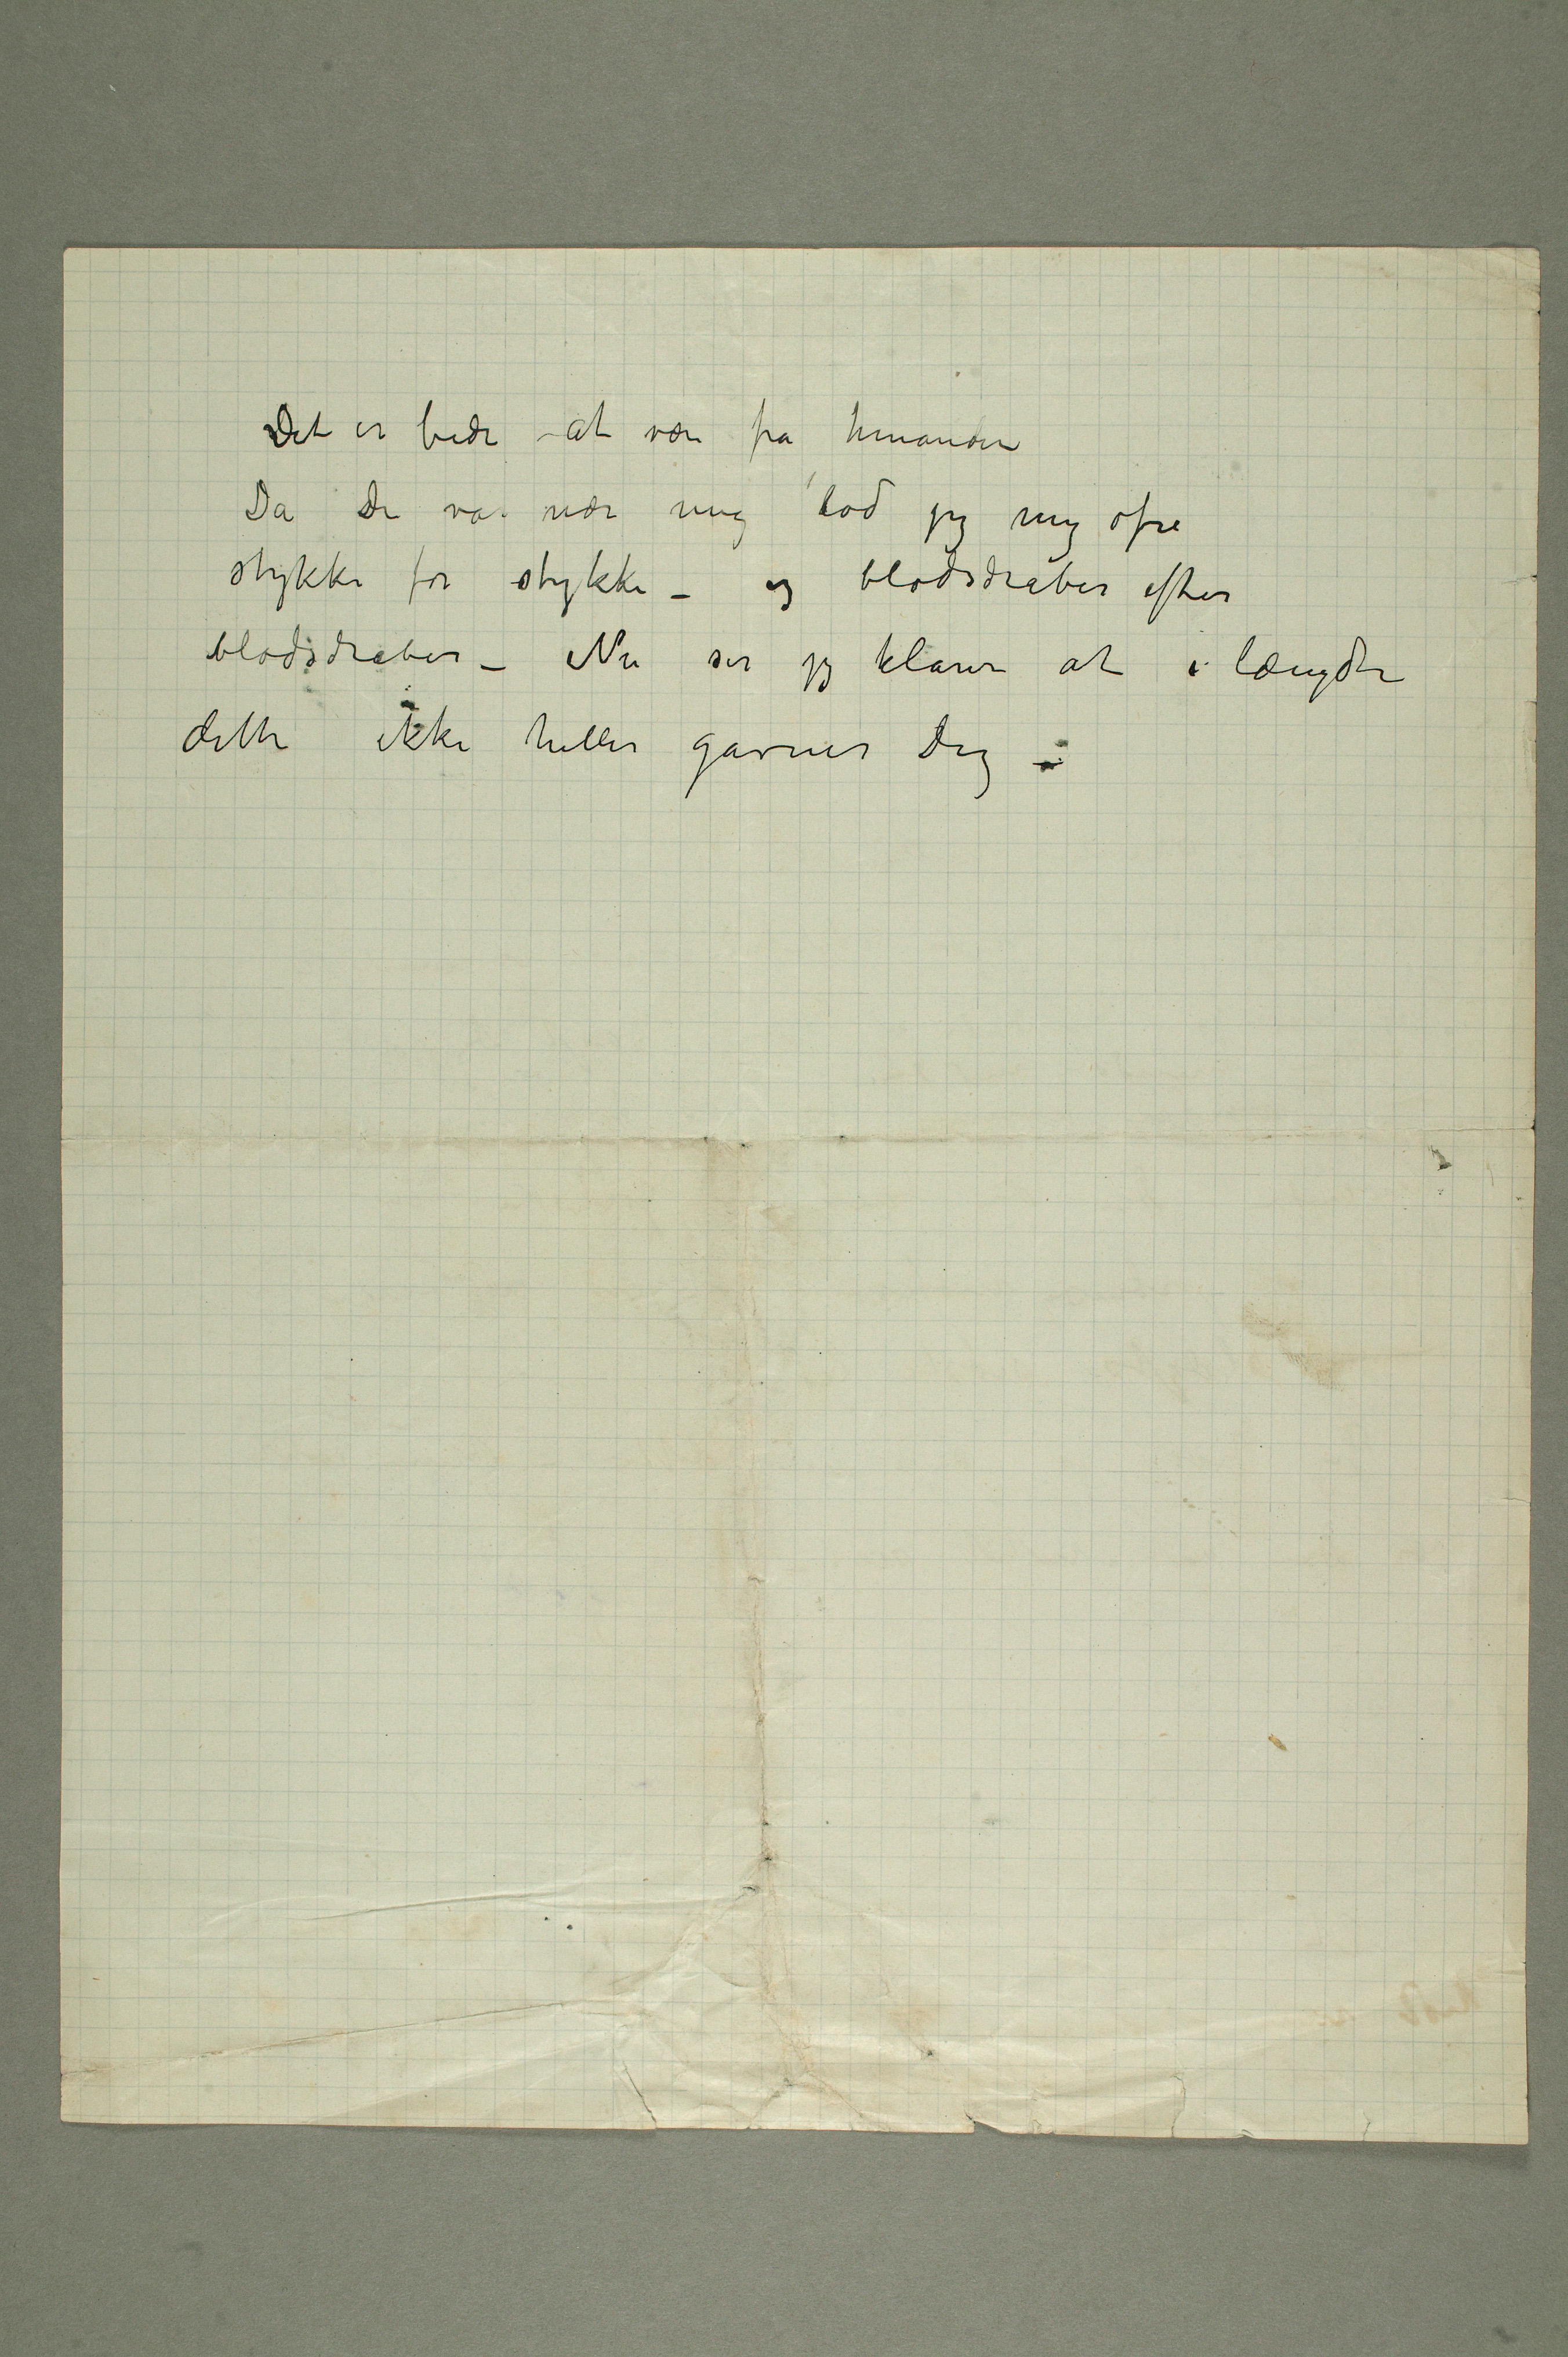 Det er bedre at være fra hinanden
Da De var nær mig lod jeg mig ofre
stykke for stykke – og blodsdraber efter
blodsdraber – Nu ser jeg klarere at i længden
dette ikke heller gavner Dig –